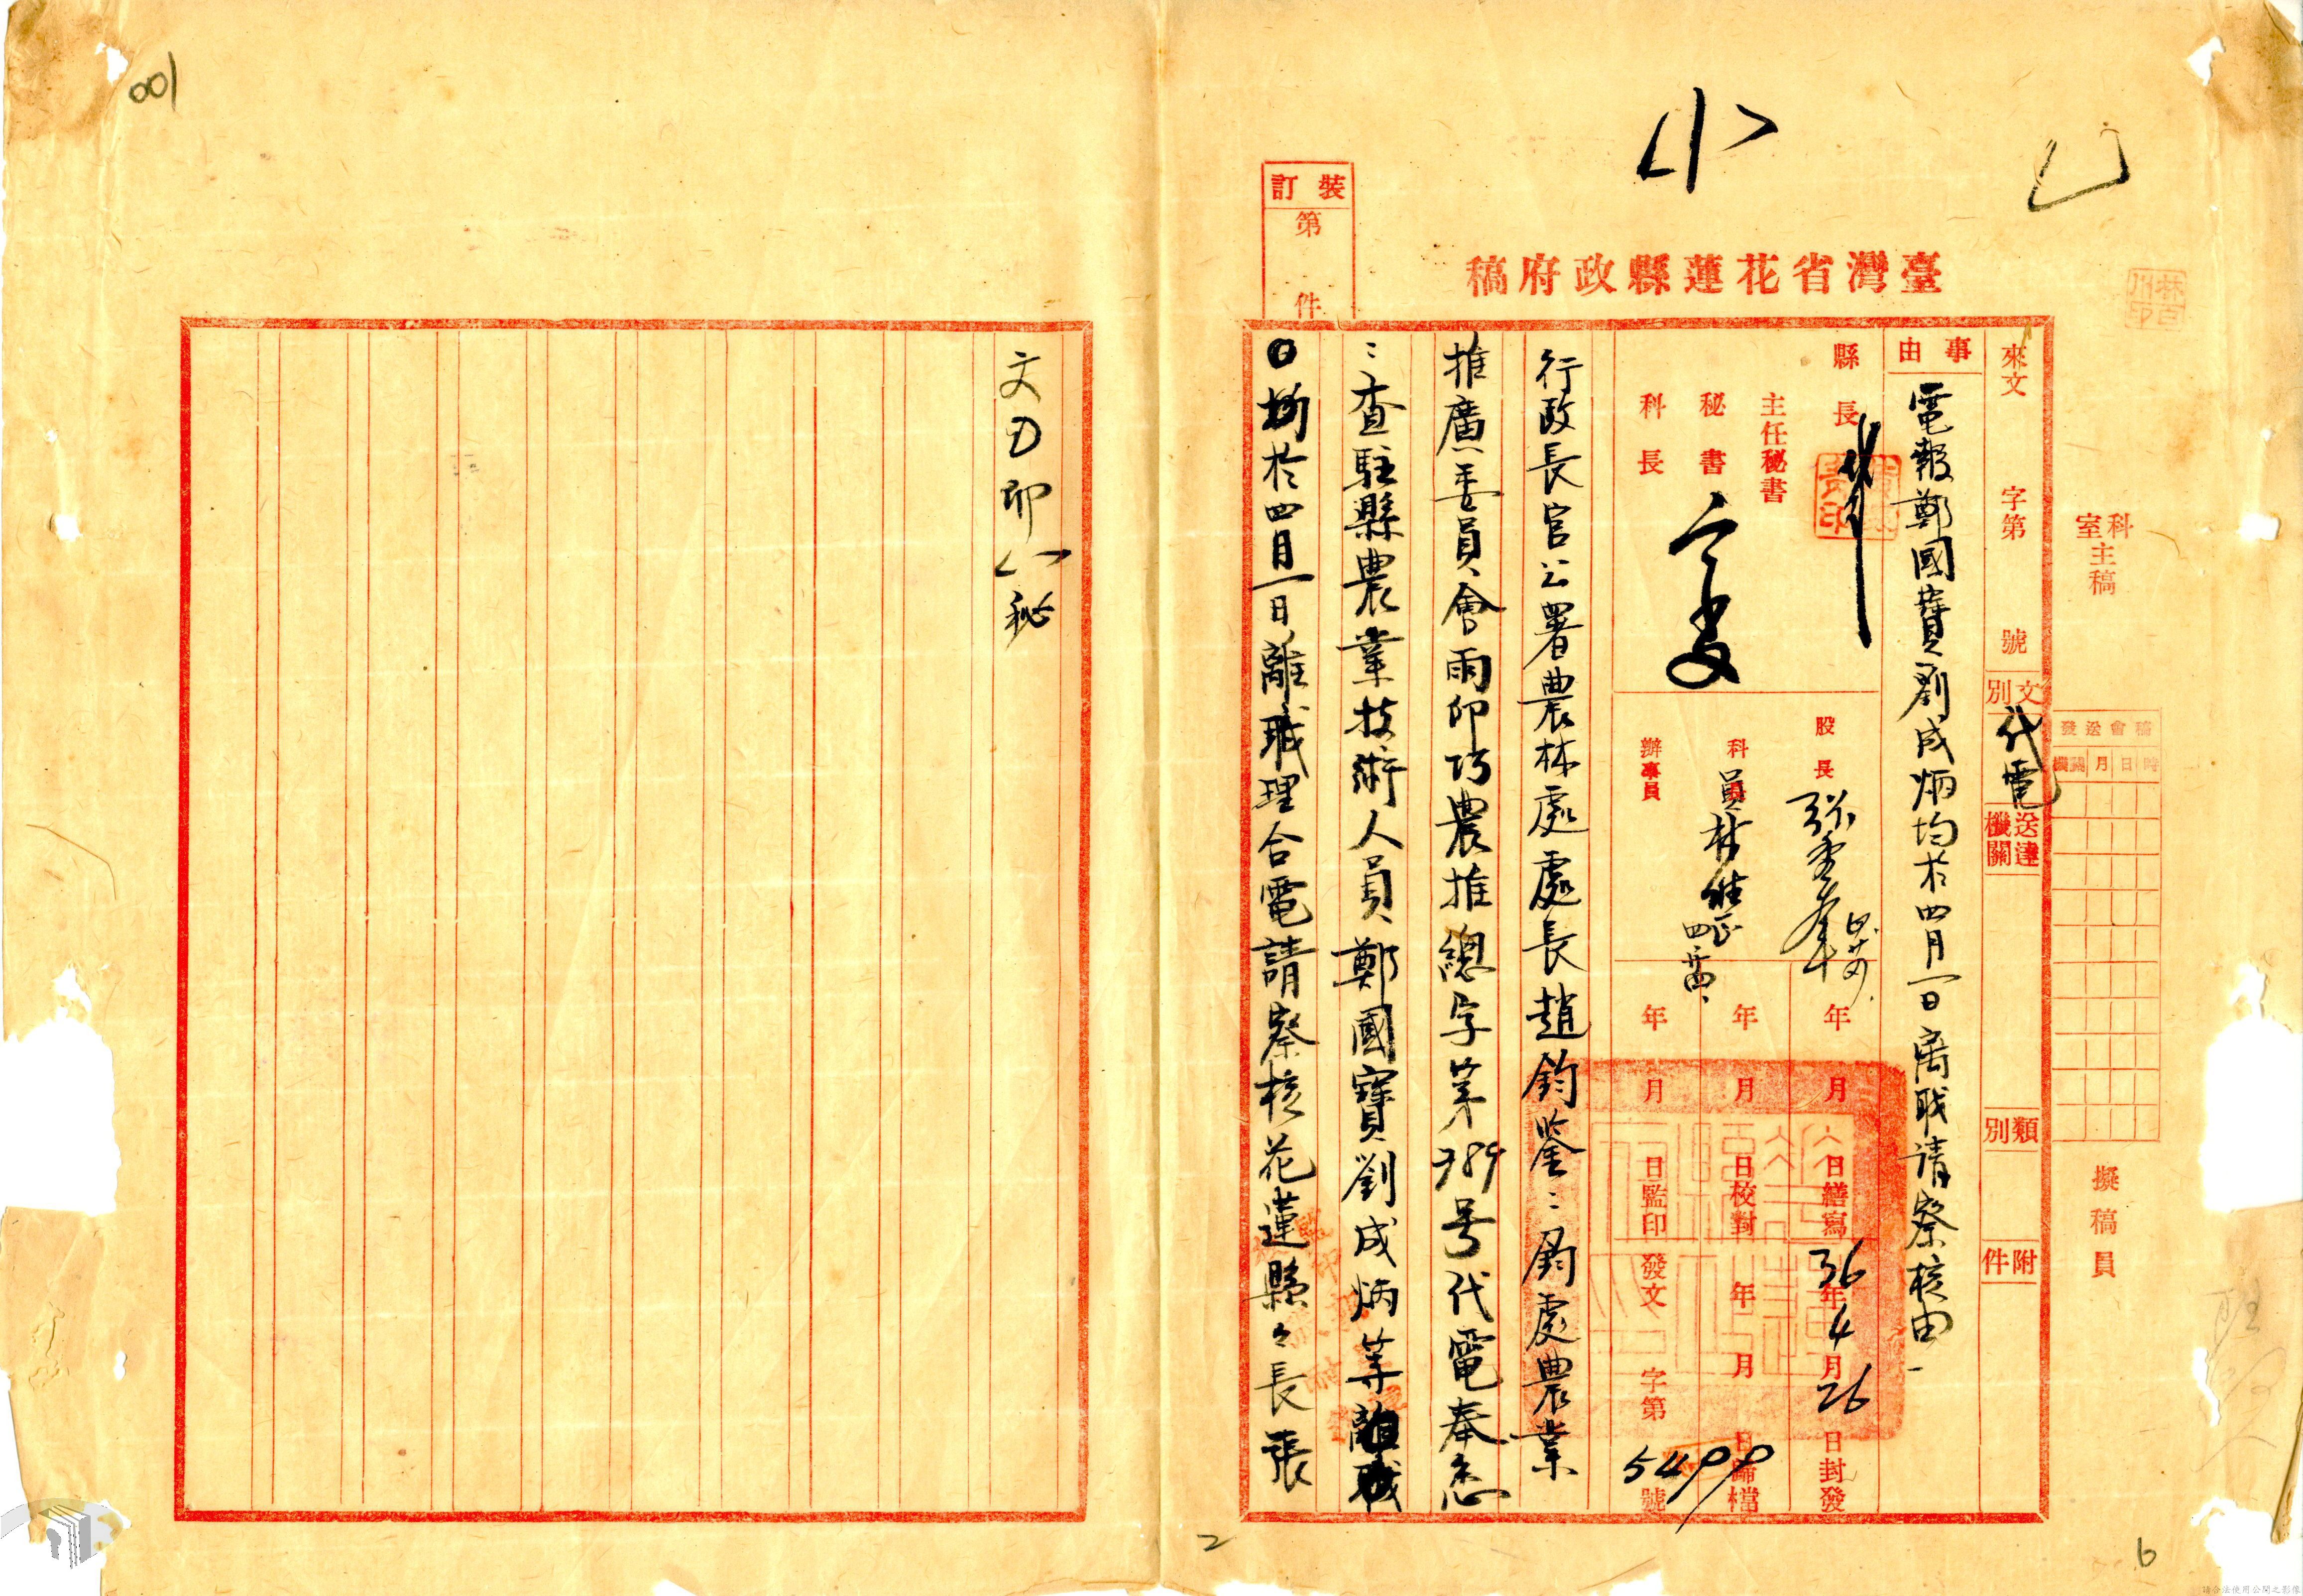 001
臺灣省花蓮縣政府稿
裝訂
第 件
科室主稿
擬稿員
稿會送發
時日月機關
來文 字第 號
文別
代電
送達機關
類別
附件
事由
電報鄭國寶劉成炳均於四月一日离职请察核由
縣長
主任秘書
秘書
科長
股長
科員 林
辦事員
年 月 日繕寫
年 月 日校對
年 月 日監印
36年4月26日封發
年 月 日歸檔
發文 字第5499號
行政長官公署農林處處長趙鈞鑒:鈞處農業
推廣委員會雨卯巧農推總字第789号代電奉悉
:查駐縣農業技術人員鄭國寶劉成炳等離職
於四月一日離職理合電請察核花蓮縣々長張
文 卯 秘
2
6